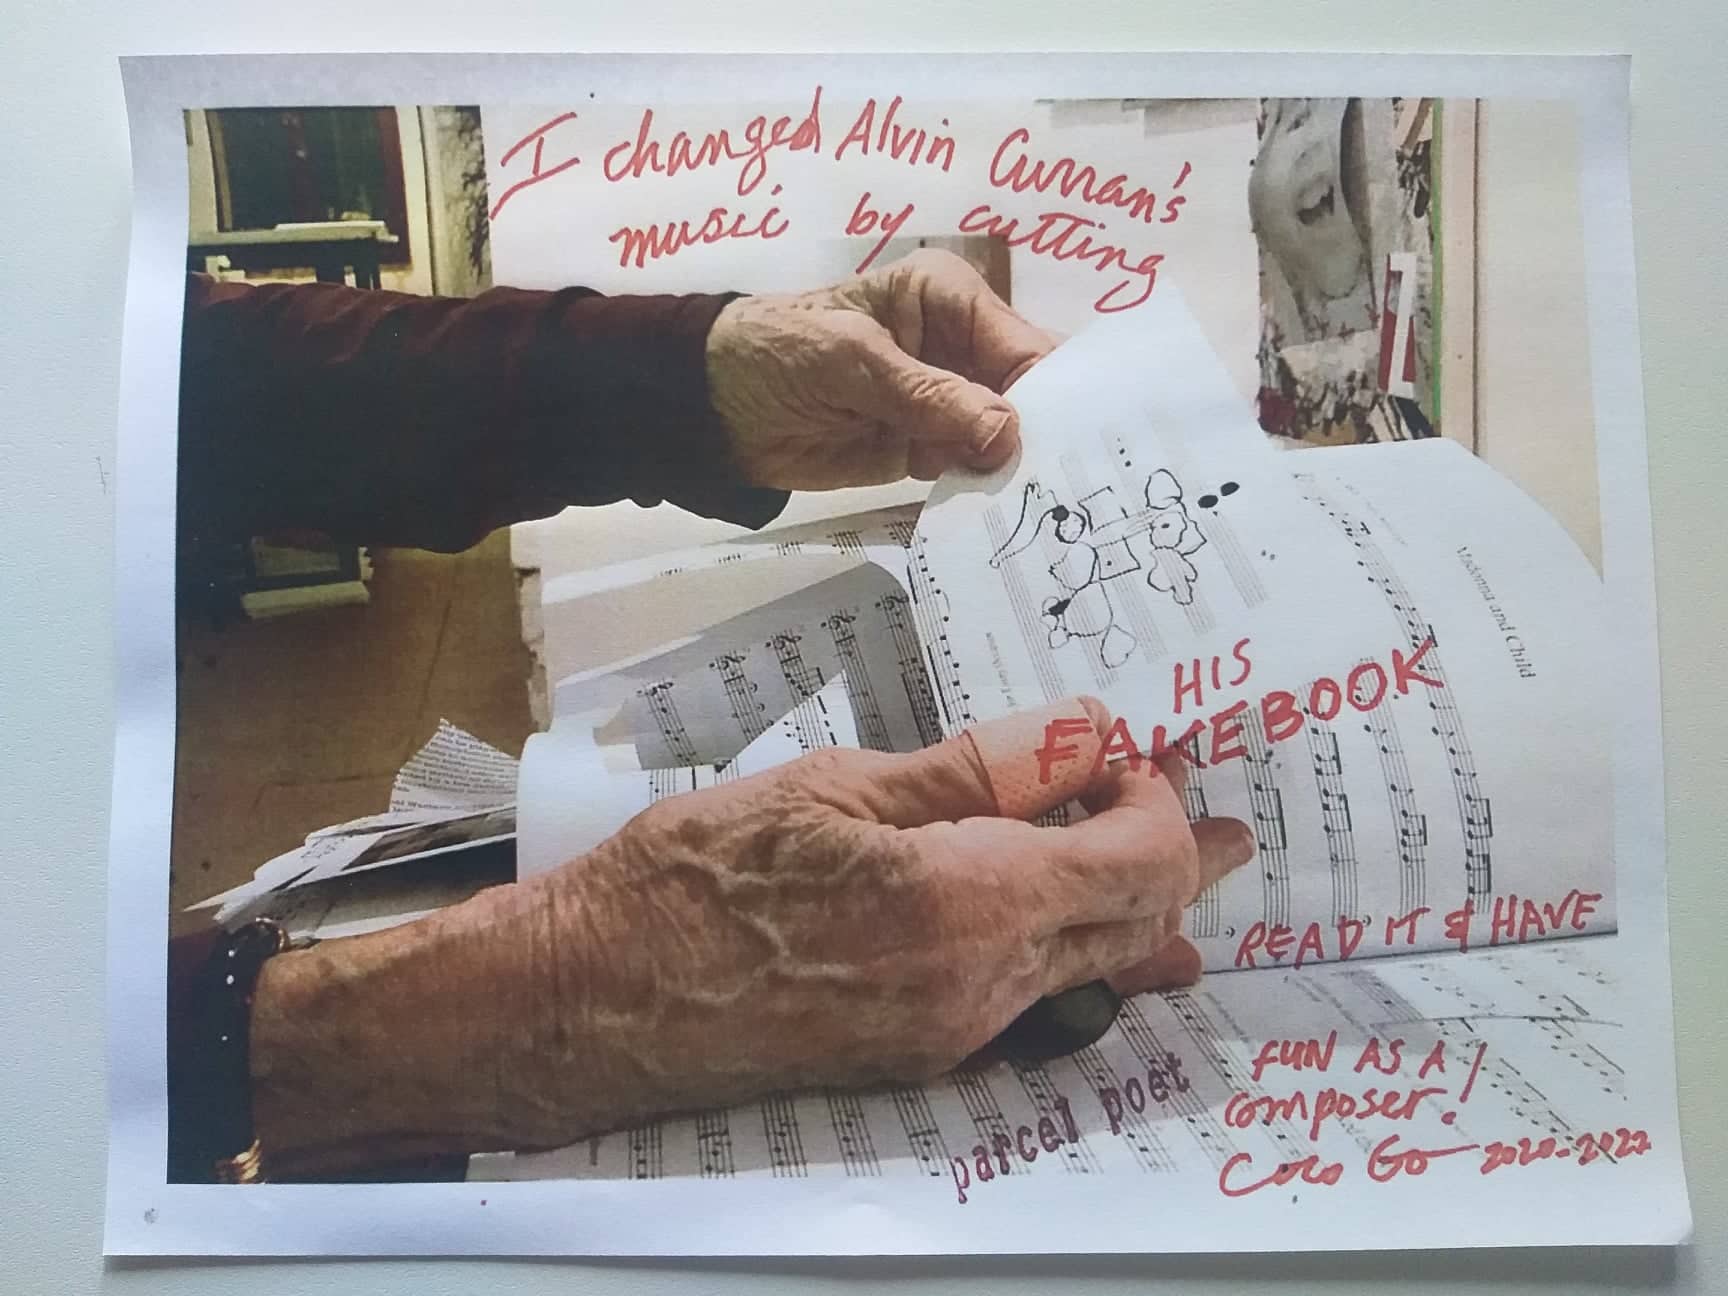 I changed Alvin Curran's
music by cutting
HIS
FAKEBOOK
Madonna and Child
READ IT & HAVE
FUN AS A
composer!
parcel poet
Coco Go 2020-2022